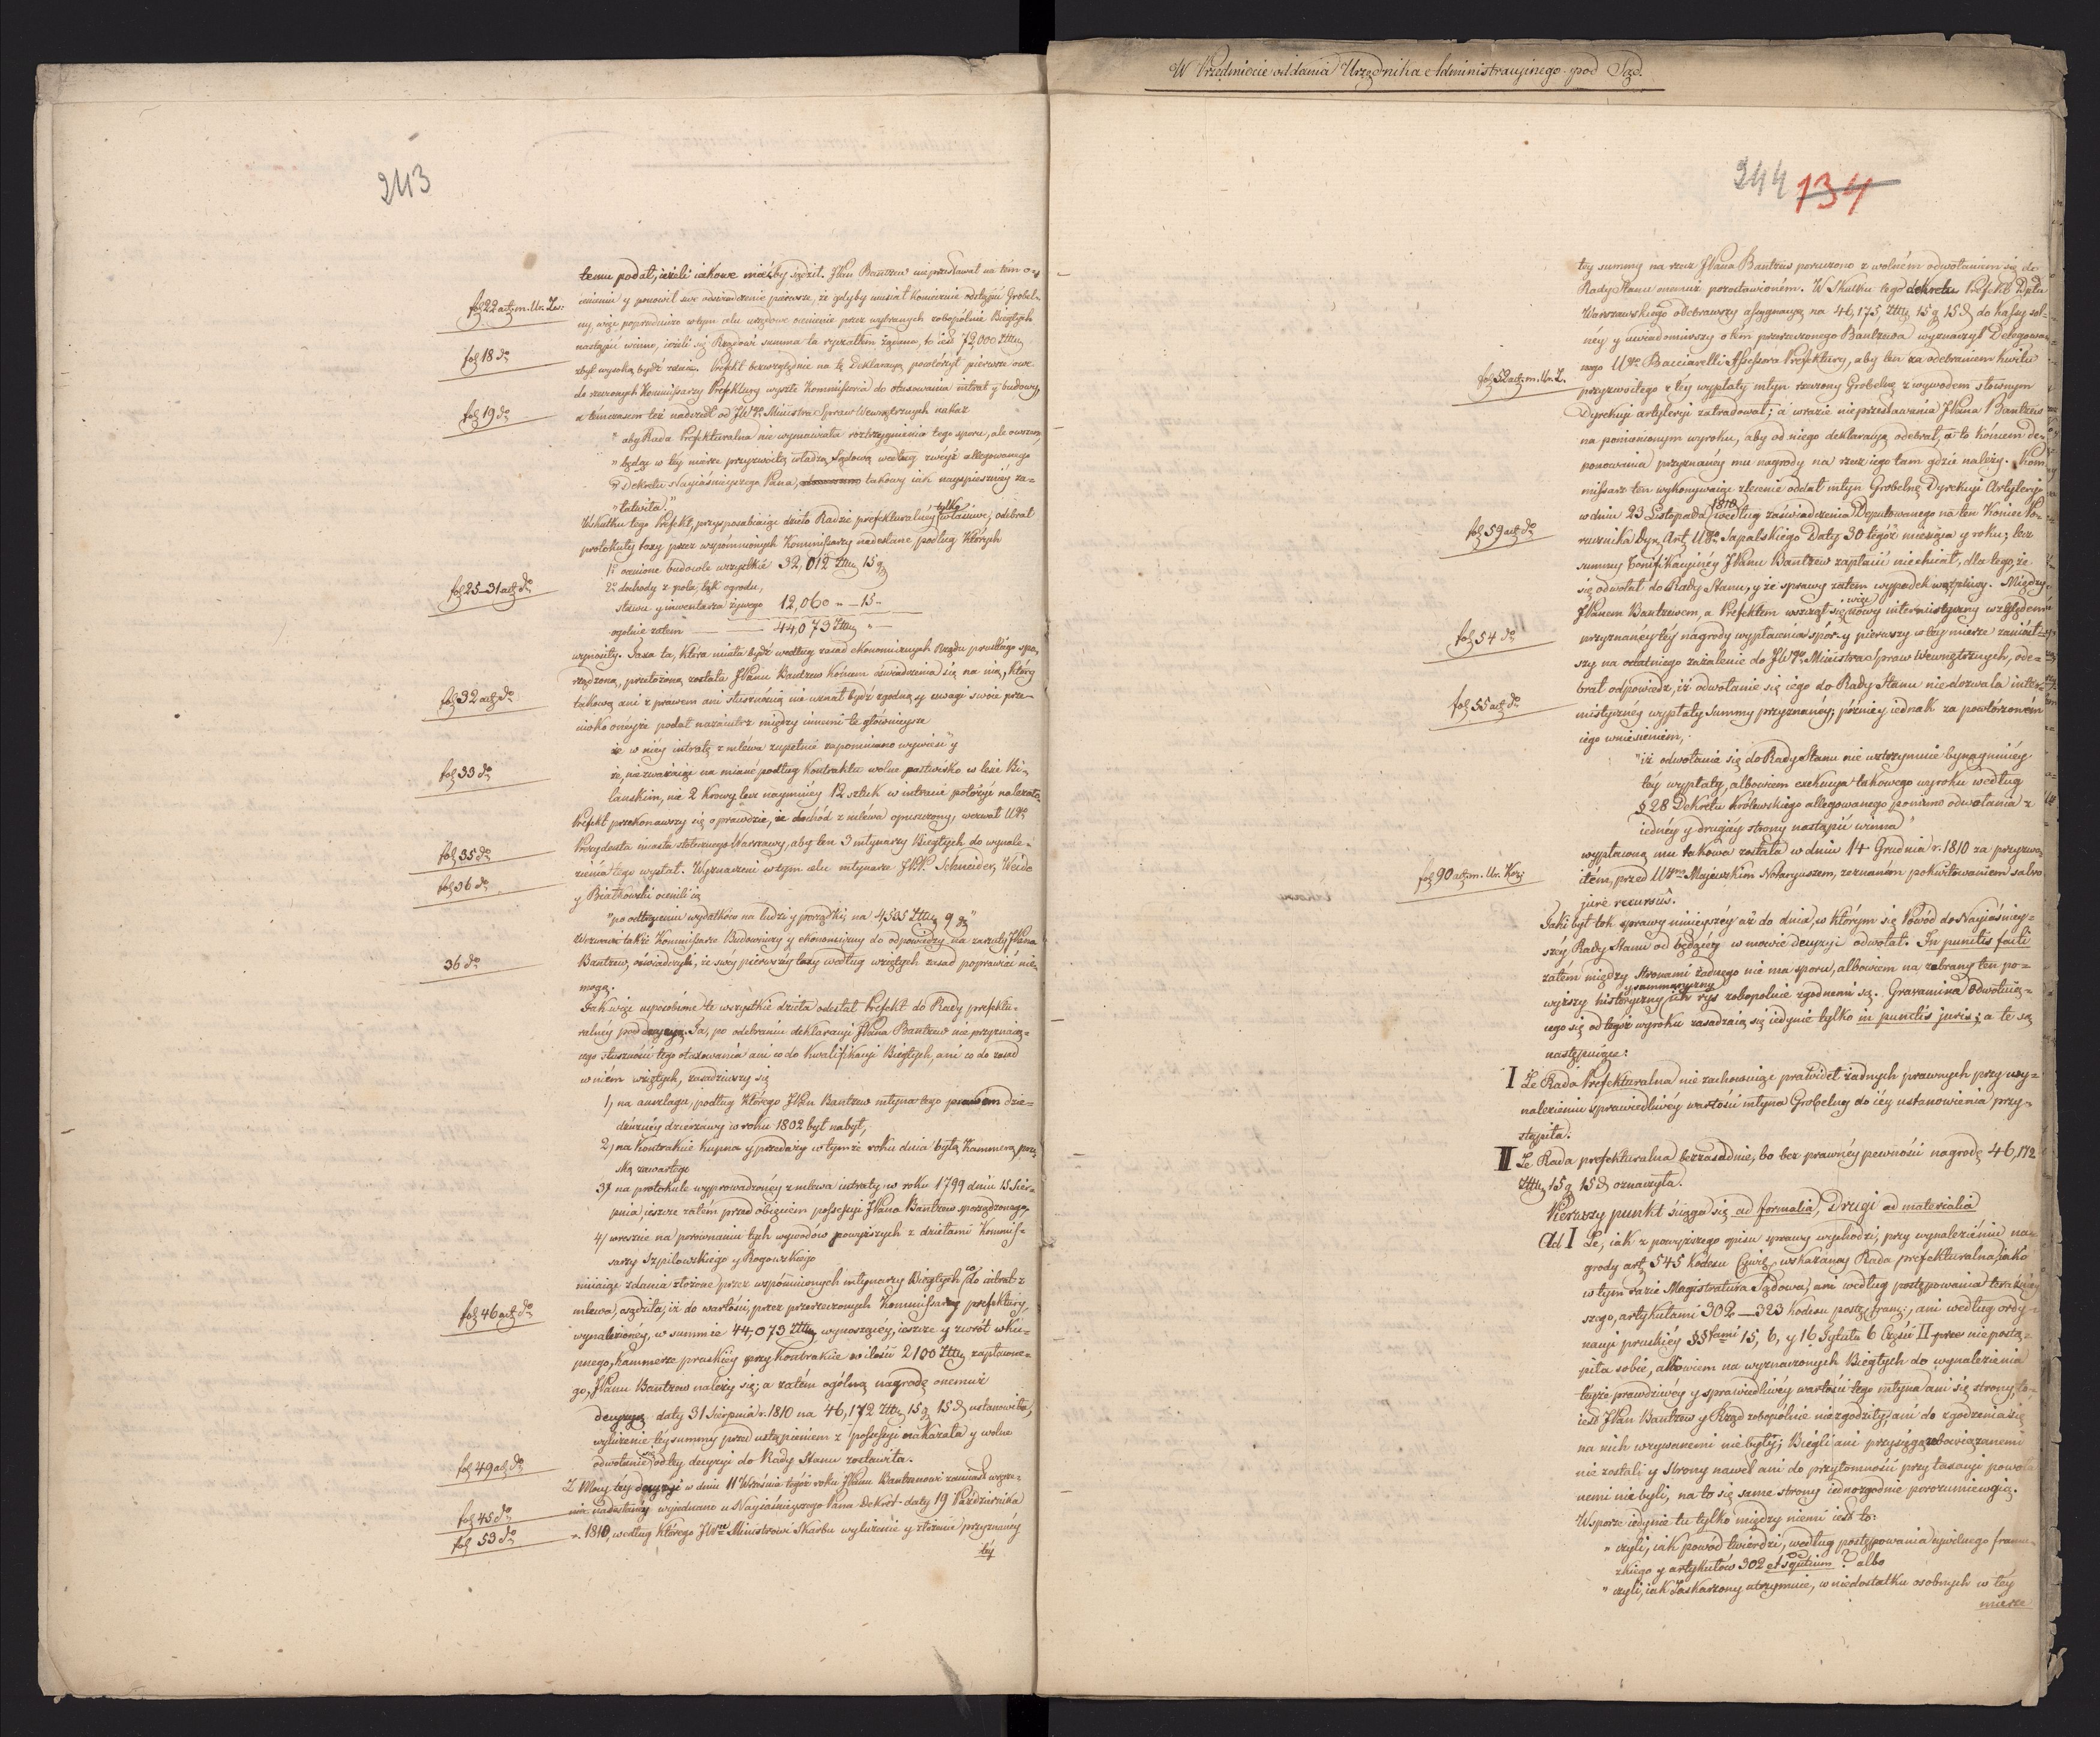 243
temu podał, ieżeli iakowe mieć by sądził. JPan Bantzew nieprzestawał na tém o-
cenieniu y ponowił swe odświadczenie pierwsze, że gdyby musiał koniecznie odstąpić Grobel-
ny, więc poprzedniczo w tym celu urzędowe ocenienie przez wybranych zobopólnie Biegłych
fol 22 act. m. Ur. Zw:
nastąpić winno, ieżeli się Rządowi summa ta ryczałtem żądana, to iest 72,000 Złłu
fol 18 do
zbyt wysoką bydź zdaie. Prefekt bezwzględnie na tę Deklaracyą powtórzył pierwsze swe
do rzeczonych Kommissarzy Prefektury wyszłe Kommissoria do otaxowania intrat y budowy,
a tymczasem też nadszedł od JWo Ministra Spraw Wewnętrznych nakaz
fol 19 do
" aby Rada Prefekturalna nie wymawiała roztrzygnienia tego sporu, ale owszem,
" będąc w téy mierze przyzwoitą władzą Sądową według zwyż allegowanego
" Dekretu Nayiaśnieyszego Pana, takowy iak nayspieszniéy za-
" łatwiła."
Wskutku tego Prefekt, przysposabiaiąc dzieło Radzie prefekturalnéy tylko właściwe, odebrał
protokuły taxy przez wspomnionych Kommissarzy nadesłane podług których
1o ocenione budowle wszystkie 32,012 Złłu 15 g
2o dochody z pola, łąk ogrodu,
fol 25-31 act do
stawu y inwentarza żywego 12,060 " - 15 "
ogólnie zatem 44,073 Złłu " -
wynosiły. Taxa ta, która miała bydź według zasad ekonomicznych Rządu pruskiego spo-
rządzoną, przełożoną została JPanu Bantzew końcem oświadczenia się na nią, który
takową ani z prawem ani słusznością nie uznał bydź zgodną, y uwagi swoie prze-
fol 32 act do
ciwko onéyże podał nazaiutrz między innemi te głównieysze
że w niéy intratę z mléwa zupełnie zapomniano wywieść y
że, niezważaiąc na miane podług Kontraktu wolne pastwisko w lesie Bi-
fol 33 do
lanskim, nie 2 krowy lecz naymniéy 12 sztuk w intracie położyć należało.
Prefekt przekonawszy się o prawdzie, że dochód z mléwa opuszczony, wezwał Wo
Prezydenta miasta stołecznego Warszawy, aby ten 3 młynarzy Biegłych do wynale-
fol 35 do
zienia tego wysłał. Wyznaczeni w tym celu młynarze JPP. Schneider, Weide
fol 36 do
y Białkowski ocenili ią
"po odtrąceniu wydatków na ludzi y porządki, na 4,535 Złłu 9 g"
Wezwani także Kommissarze Budowniczy y ekonomiczny do odpowiedzy na zarzuty JPana
Bantzew, oświadczyli, że swey pierwszéy taxy według wziętych zasad poprawić nie
36 do
mogą.
Jak więc usposobione te wszystkie dzieła odesłał Prefekt do Rady prefektu-
ralnéy pod decyzyą. Ta, po odebraniu deklaracyi JPana Bantzew nie przyznaią-
cego słuszności tego otaxowania ani co do kwalifikacyi Biegłych, ani co do zasad
w niém wziętych, zasadziwszy się
1, na anszlagu, podług którego JPan Bantzew młyna tego prawem dzie-
dziczney dzierżawy w roku 1802 był nabył,
2, na Kontrakcie kupna y przedaży w tymże roku dnia byłą Kammerą pru-
ską zawartego
3, na protokule wyprowadzonéy z mlewa intraty w roku 1799 dnia 15 Sier-
pnia, ieszcze zatém przed obięciem possessyi JPana Bantzew sporządzonego,
4, wreszcie na porównaniu tych wywodów powyższych z dziełami Kommis-
sarzy Szpilowskiego y Rogowskiego
miiaiąc zdania złożone przez wspomnionych młynarzy Biegłych co do intrat z
mlewa, osądziła, iż do wartości, przez przerzeczonych Kommissarzy prefektury,
fol 46 act do
wynalezionéy, w summie 44,073 Złłu wynoszącéy, ieszcze y zwrót wku-
pnego, Kammerze pruskiéy przy kontrakcie w ilości 2100 Złłu zapłacone-
go, JPanu Bantzew należy się; a zatém ogólną nagrodę onemuż
decyzyą daty 31 Sierpnia r. 1810 na 46,172 Złłu 15 g 15 d ustanowiła,
wyliczenie téy summy przed ustąpieniem z possessyi nakazała y wolne
odwołanie się od téy decyzyi do Rady Stanu zostawiła.
fol 49 act do
Z Mocy téy decyzyi w dniu 11 Września tegoż roku JPanu Bantzewowi zamiast wręcze-
nia nadesłanéy wyiednano u Nayiaśnieyszego Pana Dekret daty 19 Października
fol 45 do
r. 1810, według którego JWu Ministrowi Skarbu wyliczenie y złożenie przyznanéy
fol 53 do
téy
W Przedmiocie oddania Urzędnika Administracyinego pod Sąd.
244 134
téy summy na rzecz JPana Bantzew poruczono z wolném odwołaniem się do
Rady Stanu onemuż pozostawioném. W skutku tego dekretu Prefekt Dptu
Warszawskiego odebrawszy assygnacyą na 46,175 Złłu 15 g 15 d do kassy sol-
néy y uwiadomiwszy o tém przerzeczonego Bantzewa wyznaczył Delegowa-
nego Wo Bacciarelli Assessora Prefektury, aby ten za odebraniem kwitu
fol 52 act. m. Ur. Z.
przyzwoitego z téy wypłaty młyn rzeczony Grobelny z wywodem słownym
Dyrekcyi artyleryi zatradował; a w razie nieprzestawania JPana Bantzew
na pomienionym wyroku, aby od niego deklaracyą odebrał, a to końcem de-
ponowania przyznanéy mu nagrody na rzecz iego tam gdzie należy. Kom-
missarz ten wykonywaiąc zlecenie oddał młyn Grobelny Dyrekcyi Artyleryi
w dniu 23 Listopada 1810 według zaświadczenia Deputowanego na ten koniec Po-
rucznika Dyr. Art. Wo Sapalskiego Daty 30 tegoż miesiąca y roku; lecz
fol 59 act do
summy bonifikacyinéy JPanu Bantzew zapłacić niechciał, dla tego, że
się odwołał do Rady Stanu, y że sprawy zatem wypadek wątpliwy. Między
JPanem Bantzewem, a Prefektem wszczął się więc nowy intermistyczny względem
przyznanéy téy nagrody wypłacenia spór y pierwszy w téy mierze zaniósł-
fol 54 do
szy na ostatniego zażalenie do JWo Ministra Spraw Wewnętrznych, ode-
brał odpowiedź, iż odwołanie się iego do Rady Stanu niedozwala inter-
fol 55 act do
mistycznéy wypłaty summy przyznanéy; późniéy iednak za powtórzoném
iego wniesieniem,
"iż odwołanie się do Rady Stanu nie wstrzymuie bynaymniéy
téy wypłaty, albowiem exekucya takowego wyroku według
§ 28 Dekretu Królewskiego allegowanego pomimo odwołania z
iednéy y drugiéy strony nastąpić winna"
wypłaconą mu takowa została w dniu 14 Grudnia r. 1810 za przyzwo-
fol 90 act. m. Ur. Kozi
itém, przed Wm Majewskim Notaryuszem, zeznaném pokwitowaniem salvo
jure recursûs.
Jaki był tok sprawy ninieyszéy aż do dnia, w którym się Powód do Nayiaśniey-
széy Rady Stanu od będącéy w mowie decyzyi odwołał. In punctis facti
zatém między stronami żadnego nie ma sporu, albowiem na zebrany ten po-
wyższy historyczny y summaryczny ich rys zobopólnie zgodnemi są. Gravamina Odwołuią-
cego się od tegoż wyroku zasadzaią się iedynie tylko in punctis juris; a te są
następuiące:
I Że Rada Prefekturalna nie zachowuiąc prawideł żadnych prawnych przy wy-
nalezieniu sprawiedliwéy wartości młyna Grobelny do iéy ustanowienia przy-
stąpiła.
II Że Rada prefekturalna bezzasadnie, bo bez prawnéy pewności nagrodę 46,172
Złłu 15 g 15 d oznaczyła.
Pierwszy punkt ściąga się ad formalia, Drugi ad materialia
Ad I Że, iak z powyższego opisu sprawy wychodzi, przy wynalezieniu na-
grody art. 545 Kodexu Cywil. wskazanéy Rada prefekturalna, iako
w tym razie Magistratura Sądowa, ani według postępowania teraźniey-
szego, artykułami 302-323 Kodexu postęp. franc., ani według ordy-
nacyi pruskiéy §§fami 15, 6, y 16 Tytułu 6 Części II nie postą-
piła sobie, albowiem na wyznaczonych Biegłych do wynalezienia
téyże prawdziwéy y sprawiedliwéy wartości tego młyna ani się strony to-
iest JPan Bantzew y Rząd zobopólnie niezgodziły, ani do zgodzenia się
na nich wzywanemi niebyły; Biegli ani przysięgą zobowiązanemi
nie zostali y strony nawet ani do przytomności przy taxacyi powoła-
nemi nie byli, na to się same strony iednozgodnie porozumiewaią.
W sporze iedynie tu tylko między niemi iest to:
" czyli, iak powód twierdzi, według postępowania cywilnego francu-
zkiego y artykułów 302 et sequtium? albo
" czyli, iak Zaskarżony utrzymuie, w niedostatku osobnych w téy
mierze